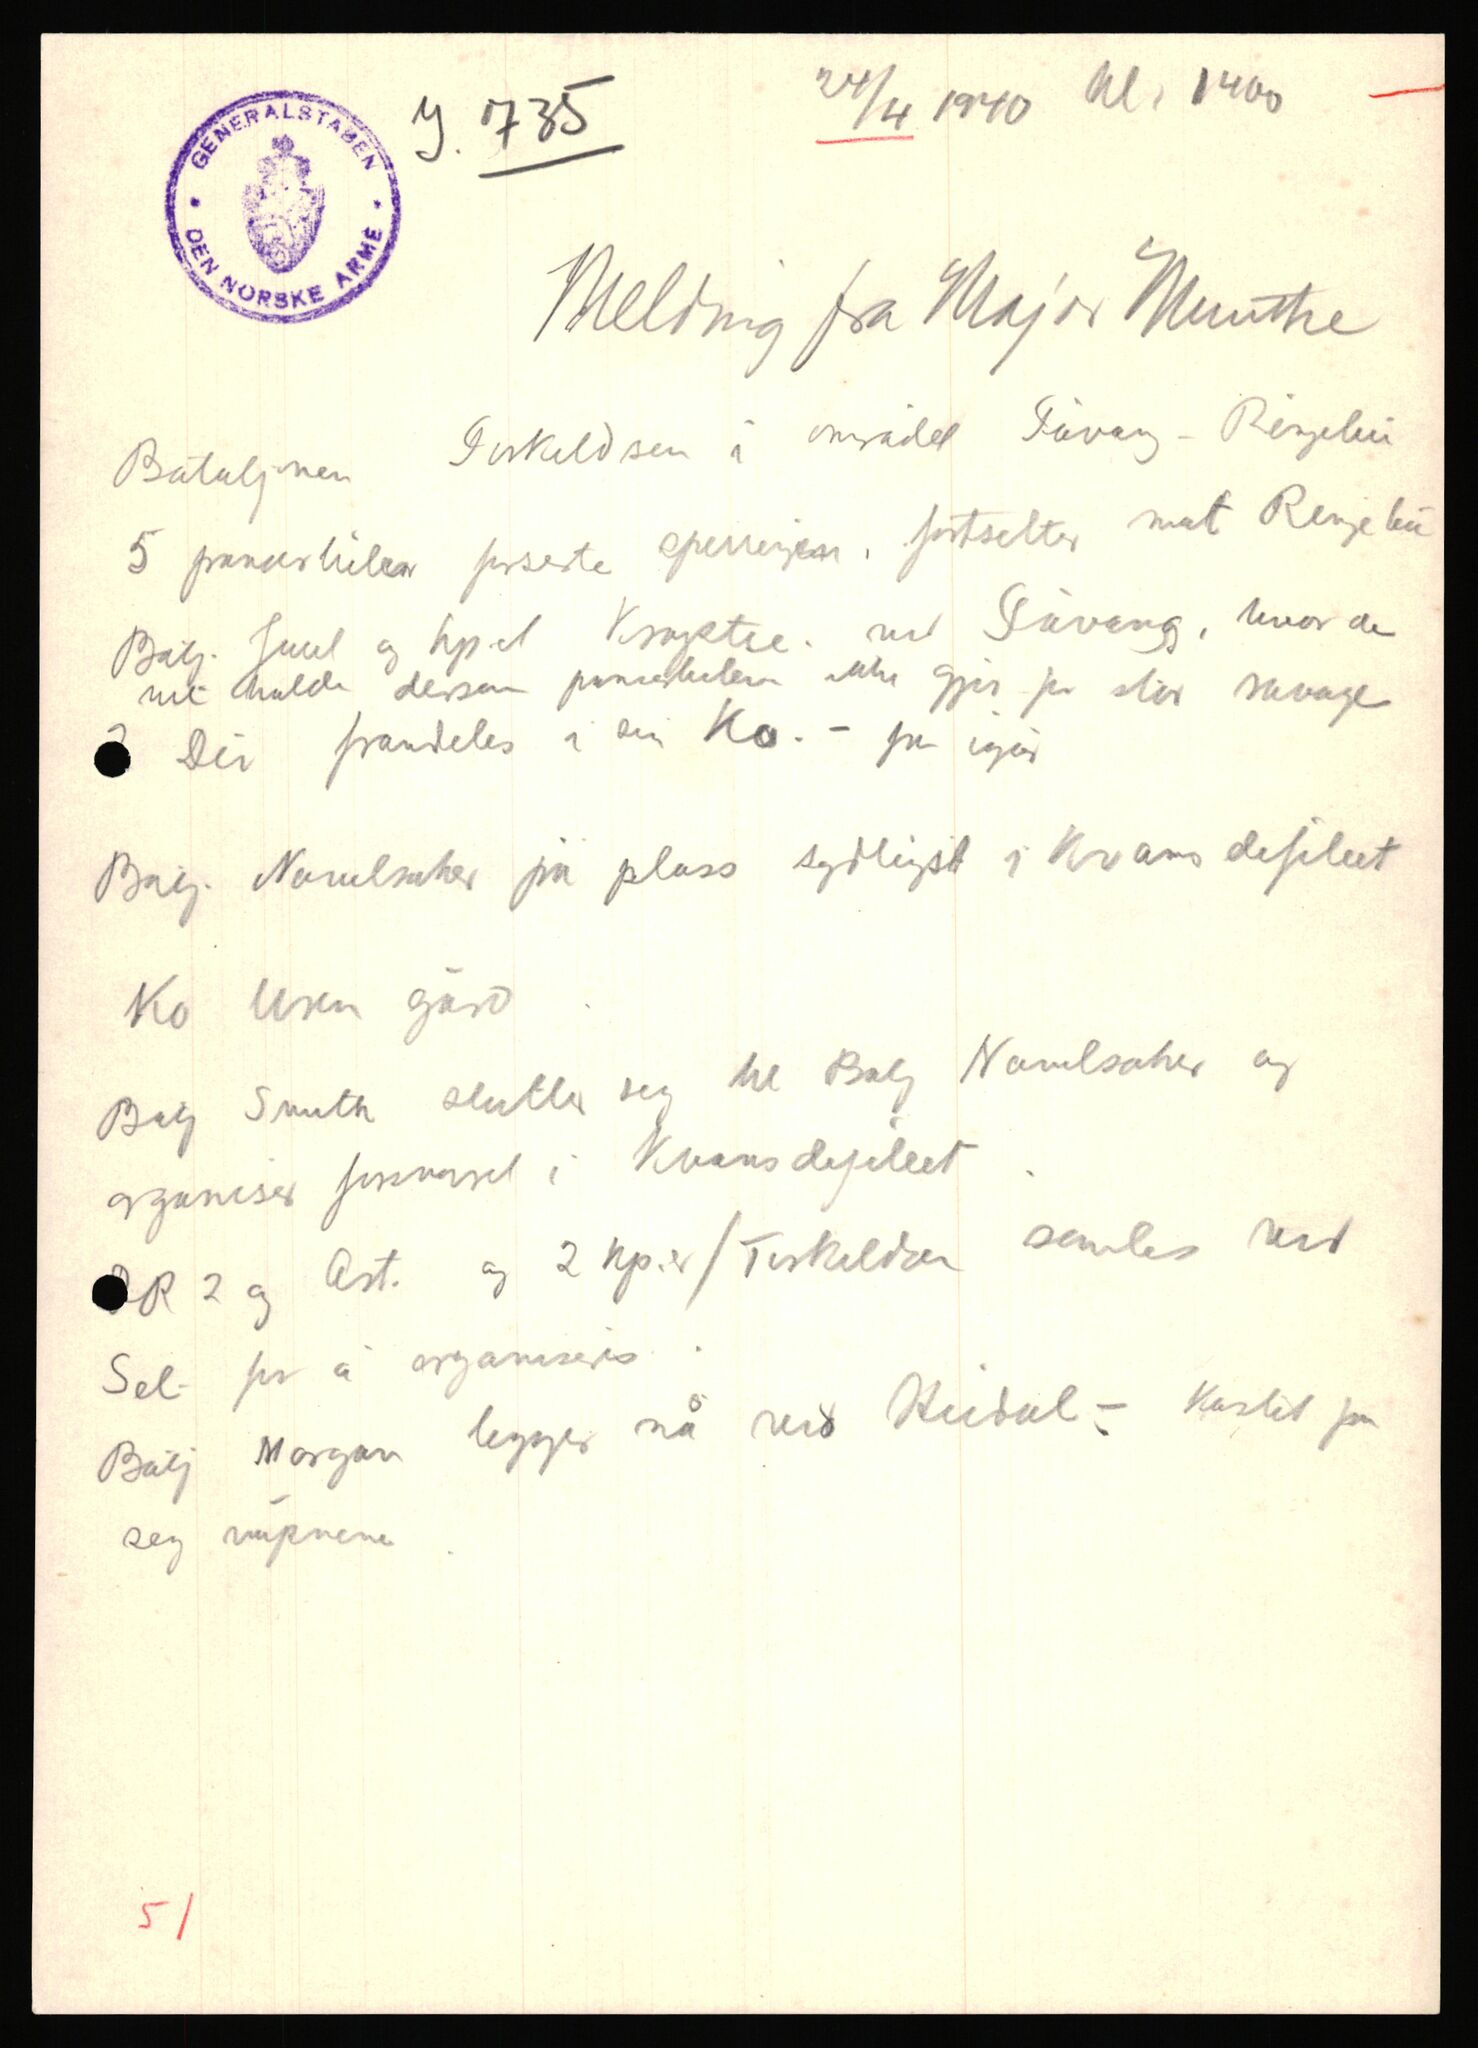 GENERALSTABEN
DEN NORSKE ARME
J. 735
24/4 1940 kl. 1400
Melding fra Major Munthe
Bataljonen Torkildsen i området Fåvang - Ringebu
5 panserbiler forserte sperringen, fortsetter mot Ringebu
Batj. Juul og kp.et ved Fåvang, hvor de
vil holde dersom panserbilene ikke gjør for stor ravage
2 Div fremdeles i sin Ko. - fra igår
Batj. på plass sydligst i Kvams defileet
Ko gård
Batj Smith slutter seg til Batj og
organiser forsvaret i Kvamsdefileet.
DR 2 og Art. og 2 kp.er/Torkildsen samles ved
Sel - for å organiseres.
Batj Morgan ligger nå ved Heidal - Kastet fra
seg våpnene.
51